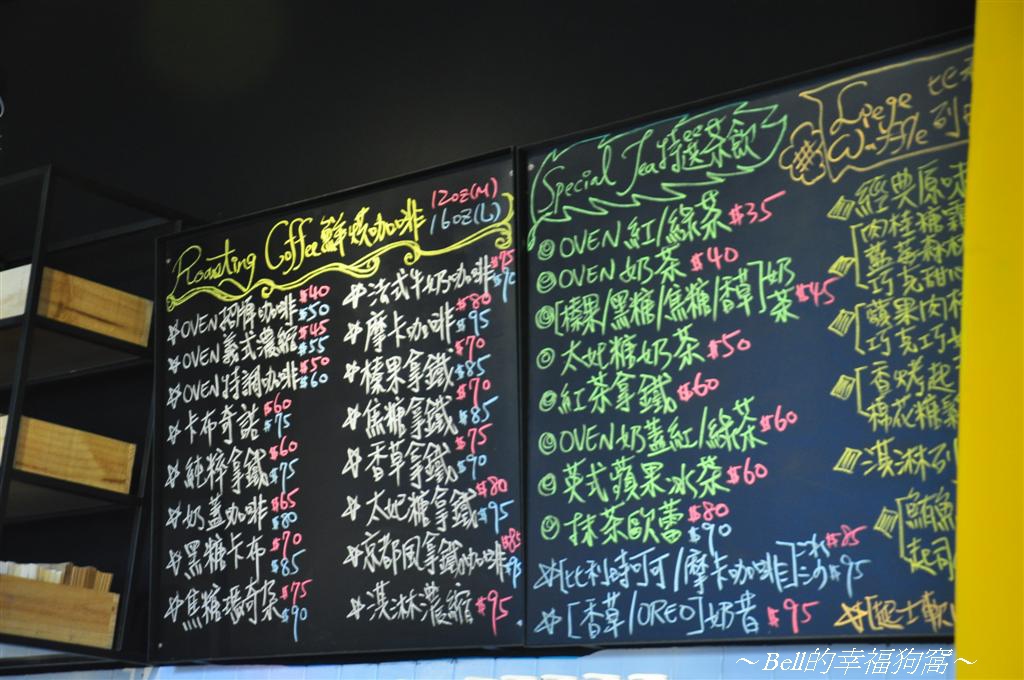 Roasting Coffee 鮮烘咖啡
12oz(M)
16oz(L)
OVEN招牌咖啡 $40 $50
OVEN義式濃縮 $45 $55
OVEN特調咖啡 $50 $60
卡布奇諾 $60 $75
純粹拿鐵 $60 $75
奶蓋咖啡 $65 $80
黑糖卡布 $70 $85
焦糖瑪奇朵 $75 $90
法式牛奶咖啡 $75 $90
摩卡咖啡 $80 $95
榛果拿鐵 $70 $85
焦糖拿鐵 $70 $85
香草拿鐵 $75 $90
太妃糖拿鐵 $80 $95
京都風拿鐵咖啡 $85 $95
淇淋濃縮 $95
Special Tea 特選茶飲
OVEN 紅/綠茶 $35
OVEN 奶茶 $40
[榛果/黑糖/焦糖/香草]奶茶 $45
太妃糖奶茶 $50
紅茶拿鐵 $60
OVEN奶蓋紅/綠茶 $60
英式蘋果冰茶 $60
抹茶歐蕾 $80 $90
[比利時可可/摩卡咖啡] $85 $95
[香草/OREO]奶昔 $95
Liege Waffle 比 列
經典原味
肉桂糖霜
藍莓森林
巧克甜心
蘋果肉桂
巧克巧
香烤起
棉花糖
淇淋列
鮪魚
起司
[起士軟
～Bell的幸福狗窩～